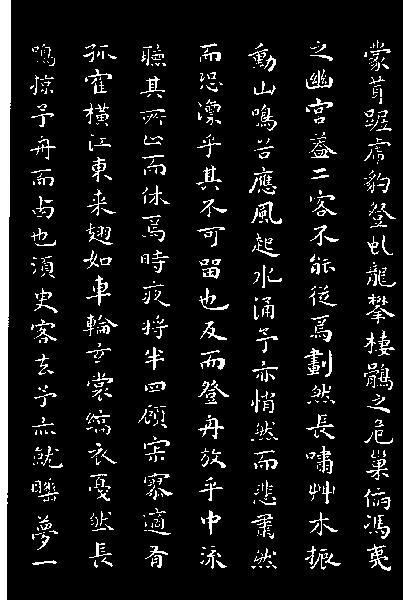 蒙茸踞虎豹登虬龍攀棲鶻之危巢俯馮夷
之幽宮蓋二客不能從焉劃然長嘯艸木振
動山鳴谷應風起水涌予亦悄然而悲肅然
而恐凜乎其不可留也反而登舟放乎中流
聽其所止而休焉時夜將半四顧宋寥適有
孤隺橫江東来翅如車輪玄裳縞衣戛然長
鳴掠予舟而西也須臾客去予亦就睡夢一